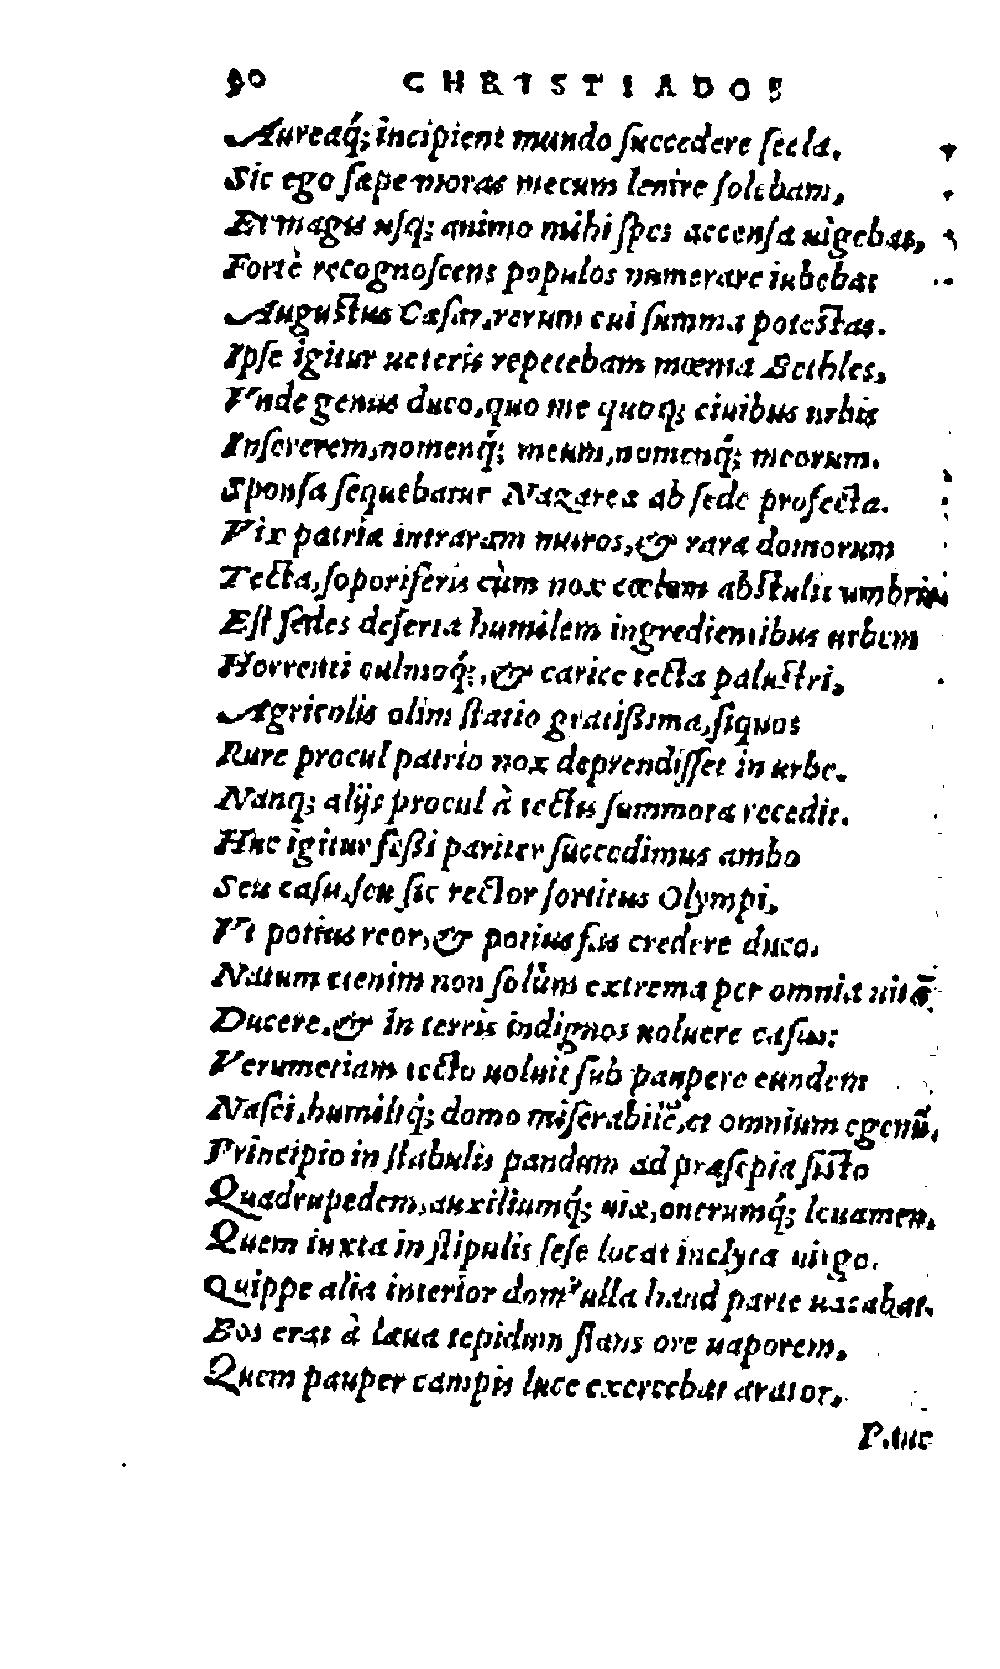 90 CHRISTIADOS
Aureaq́; incipient mundo ſuccedere ſecla.
Sic ego ſæpe moras mecum lenire ſolebam,
Et magis uſq; animo mihi ſpes accenſa uigebat,
Fortè recognoſcens populos numerare iubebat
Auguſtus Cæſar, rerum cui ſumma poteſtas.
Ipſe igitur ueteris repetebam mœnia Bethles,
Vnde genus duco, quo me quoq; ciuibus urbis
Inſererem, nomenq́; meum, nomenq́; meorum.
Sponſa ſequebatur Nazarea ab ſede profecta.
Vix patria intraram muros, & rara domorum
Tecta, ſoporiferis cùm nox cœlum abſtulit umbris
Eſt ſedes deſerta humilem ingredientibus urbem
Horrenti culmoq́;, & carice tecta paluſtri,
Agricolis olim ſtatio gratißima, ſiquos
Rure procul patrio nox deprendiſſet in urbe.
Nanq; alijs procul à tectis ſummota recedit.
Huc igitur feßi pariter ſuccedimus ambo
Seu caſu, ſeu ſic rector ſortitus Olympi,
Vt potius reor, & potius fas credere duco.
Natum etenim non ſolùm extrema per omnia uitā
Ducere, & in terris indignos uoluere caſus:
Verumetiam tecto uoluit ſub paupere eundem
Naſci, humiliq́; domo miſerabilē, et omnium egenū.
Principio in ſtabulis pandum ad præſepia ſiſto
Quadrupedem, auxiliumq́; uiæ, onerumq́; leuamen.
Quem iuxta in ſtipulis ſeſe locat inclyta uirgo.
Quippe alia interior domꝰ ulla haud parte uacabat.
Bos erat à læua tepidum flans ore uaporem,
Quem pauper campis luce exercebat arator,
Pauc